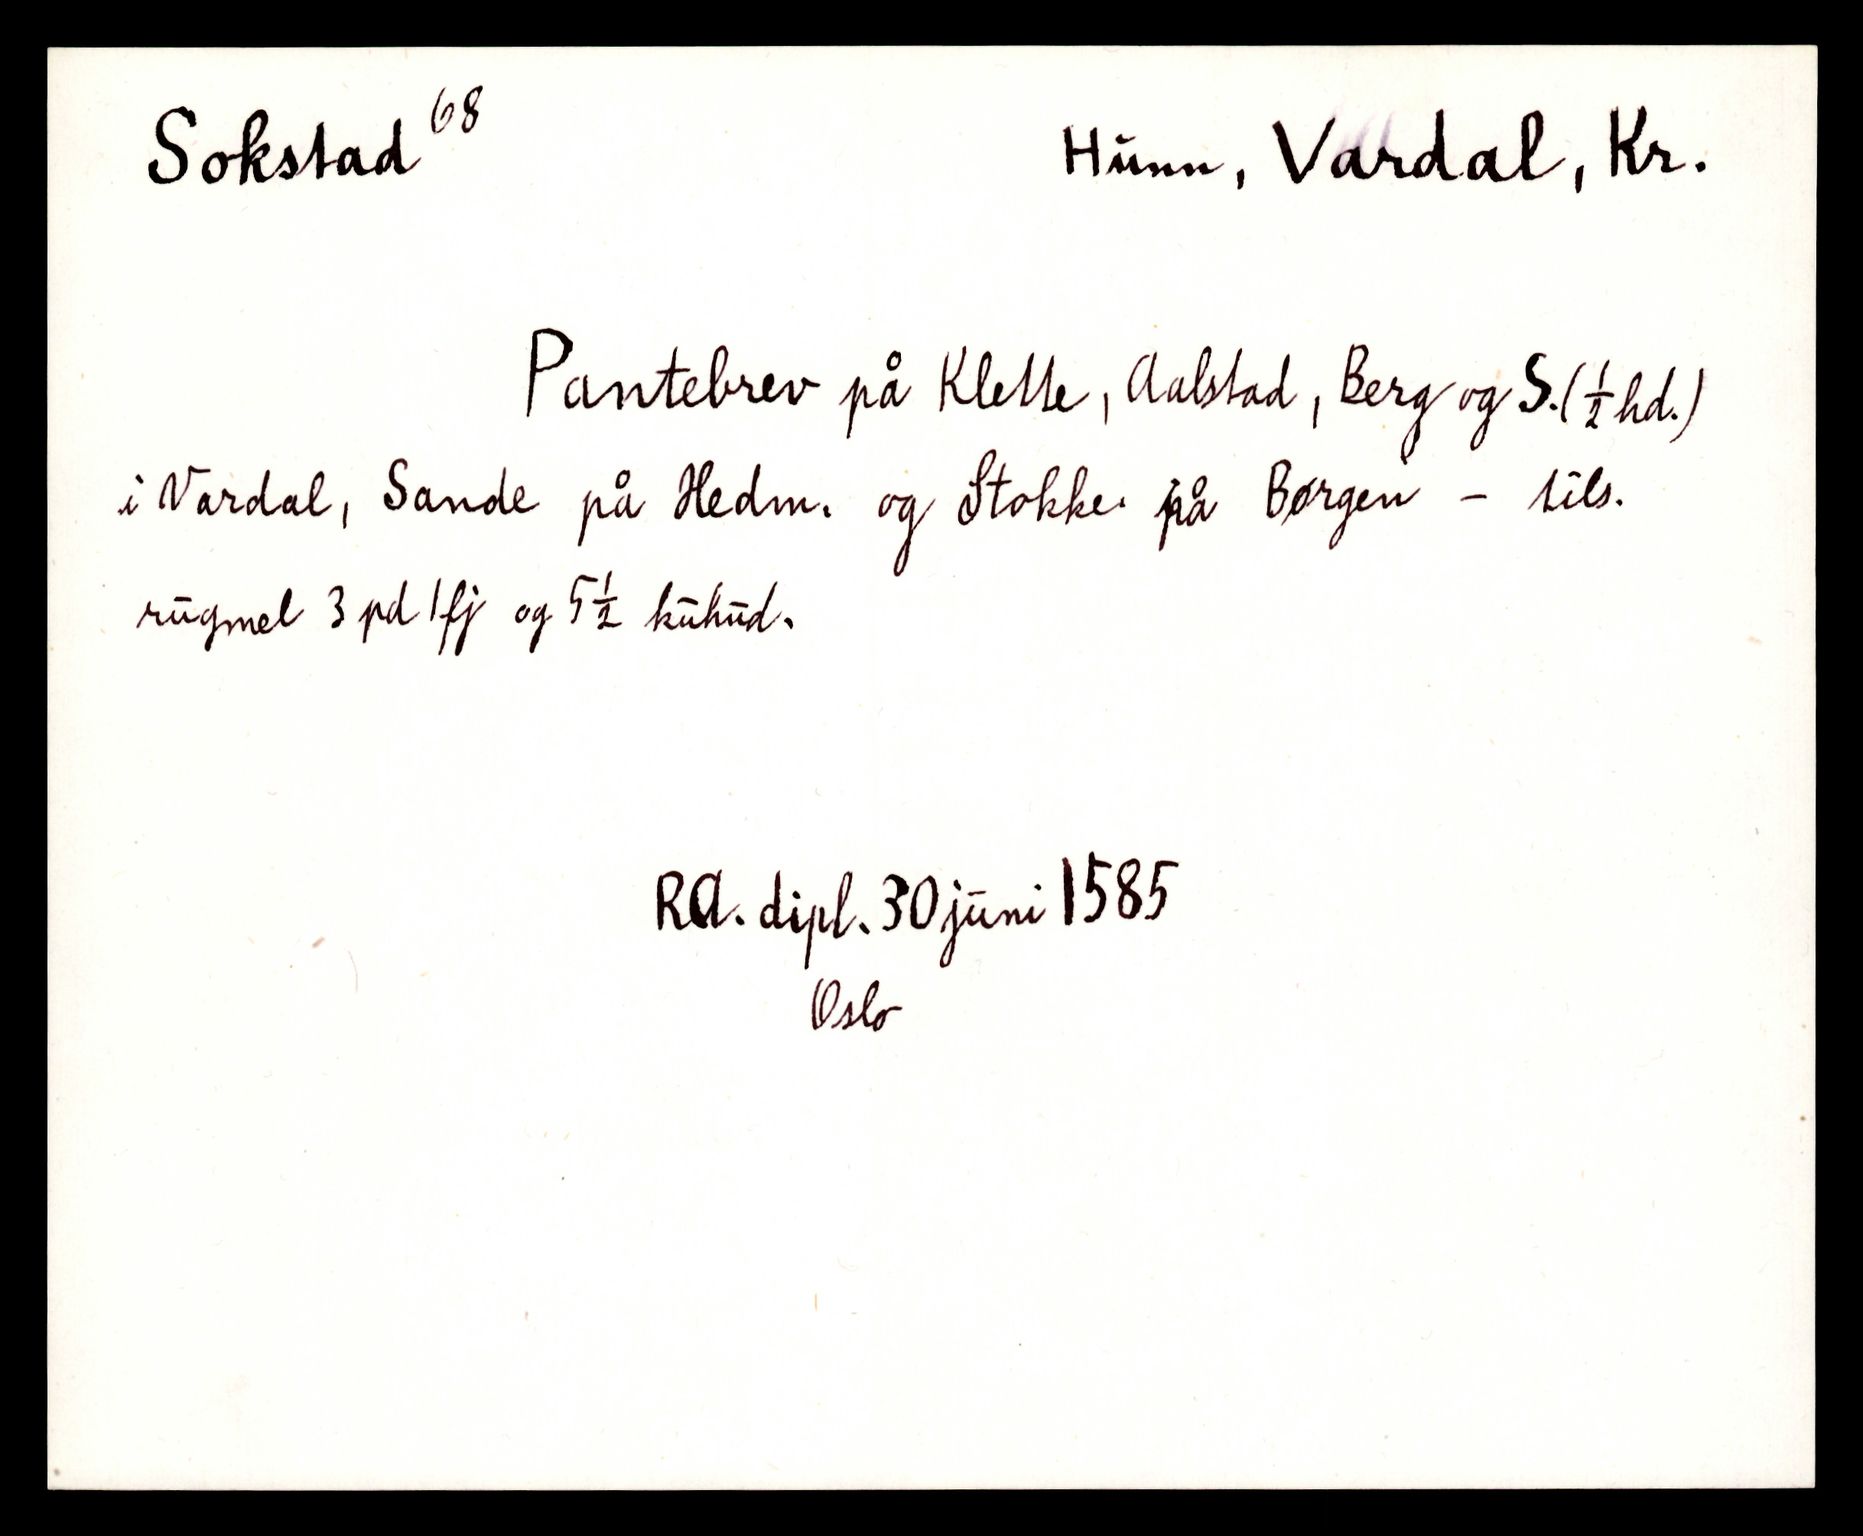 Sokstad 68 Hunn, Vardal, Kr.
Pantebrev på Klette, Aalstad, Berg og S. (½ hd.)
i Vardal, Sande på Hedm. og Stokke på Børgen - tils.
rugmel 3 pd 1 fj og 5½ kuhud.
RA. dipl. 30 juni 1585
Oslo